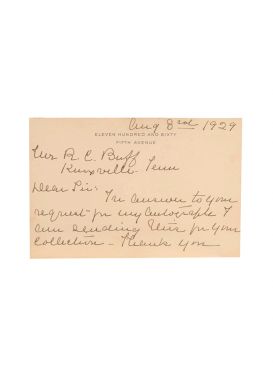 Aug 3rd 1929
ELEVEN HUNDRED AND SIXTY
FIFTH AVENUE
Mr R. C. Buff
Knoxville Tenn
Dear Sir:
In answer to your
request for my autograph I
am sending this for your
collection - Thank you